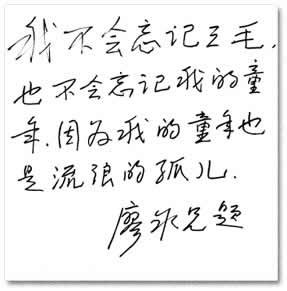 我不会忘记三毛，
也不会忘记我的童
年.因为我的童年也
是流浪的孤儿.
廖冰兄题